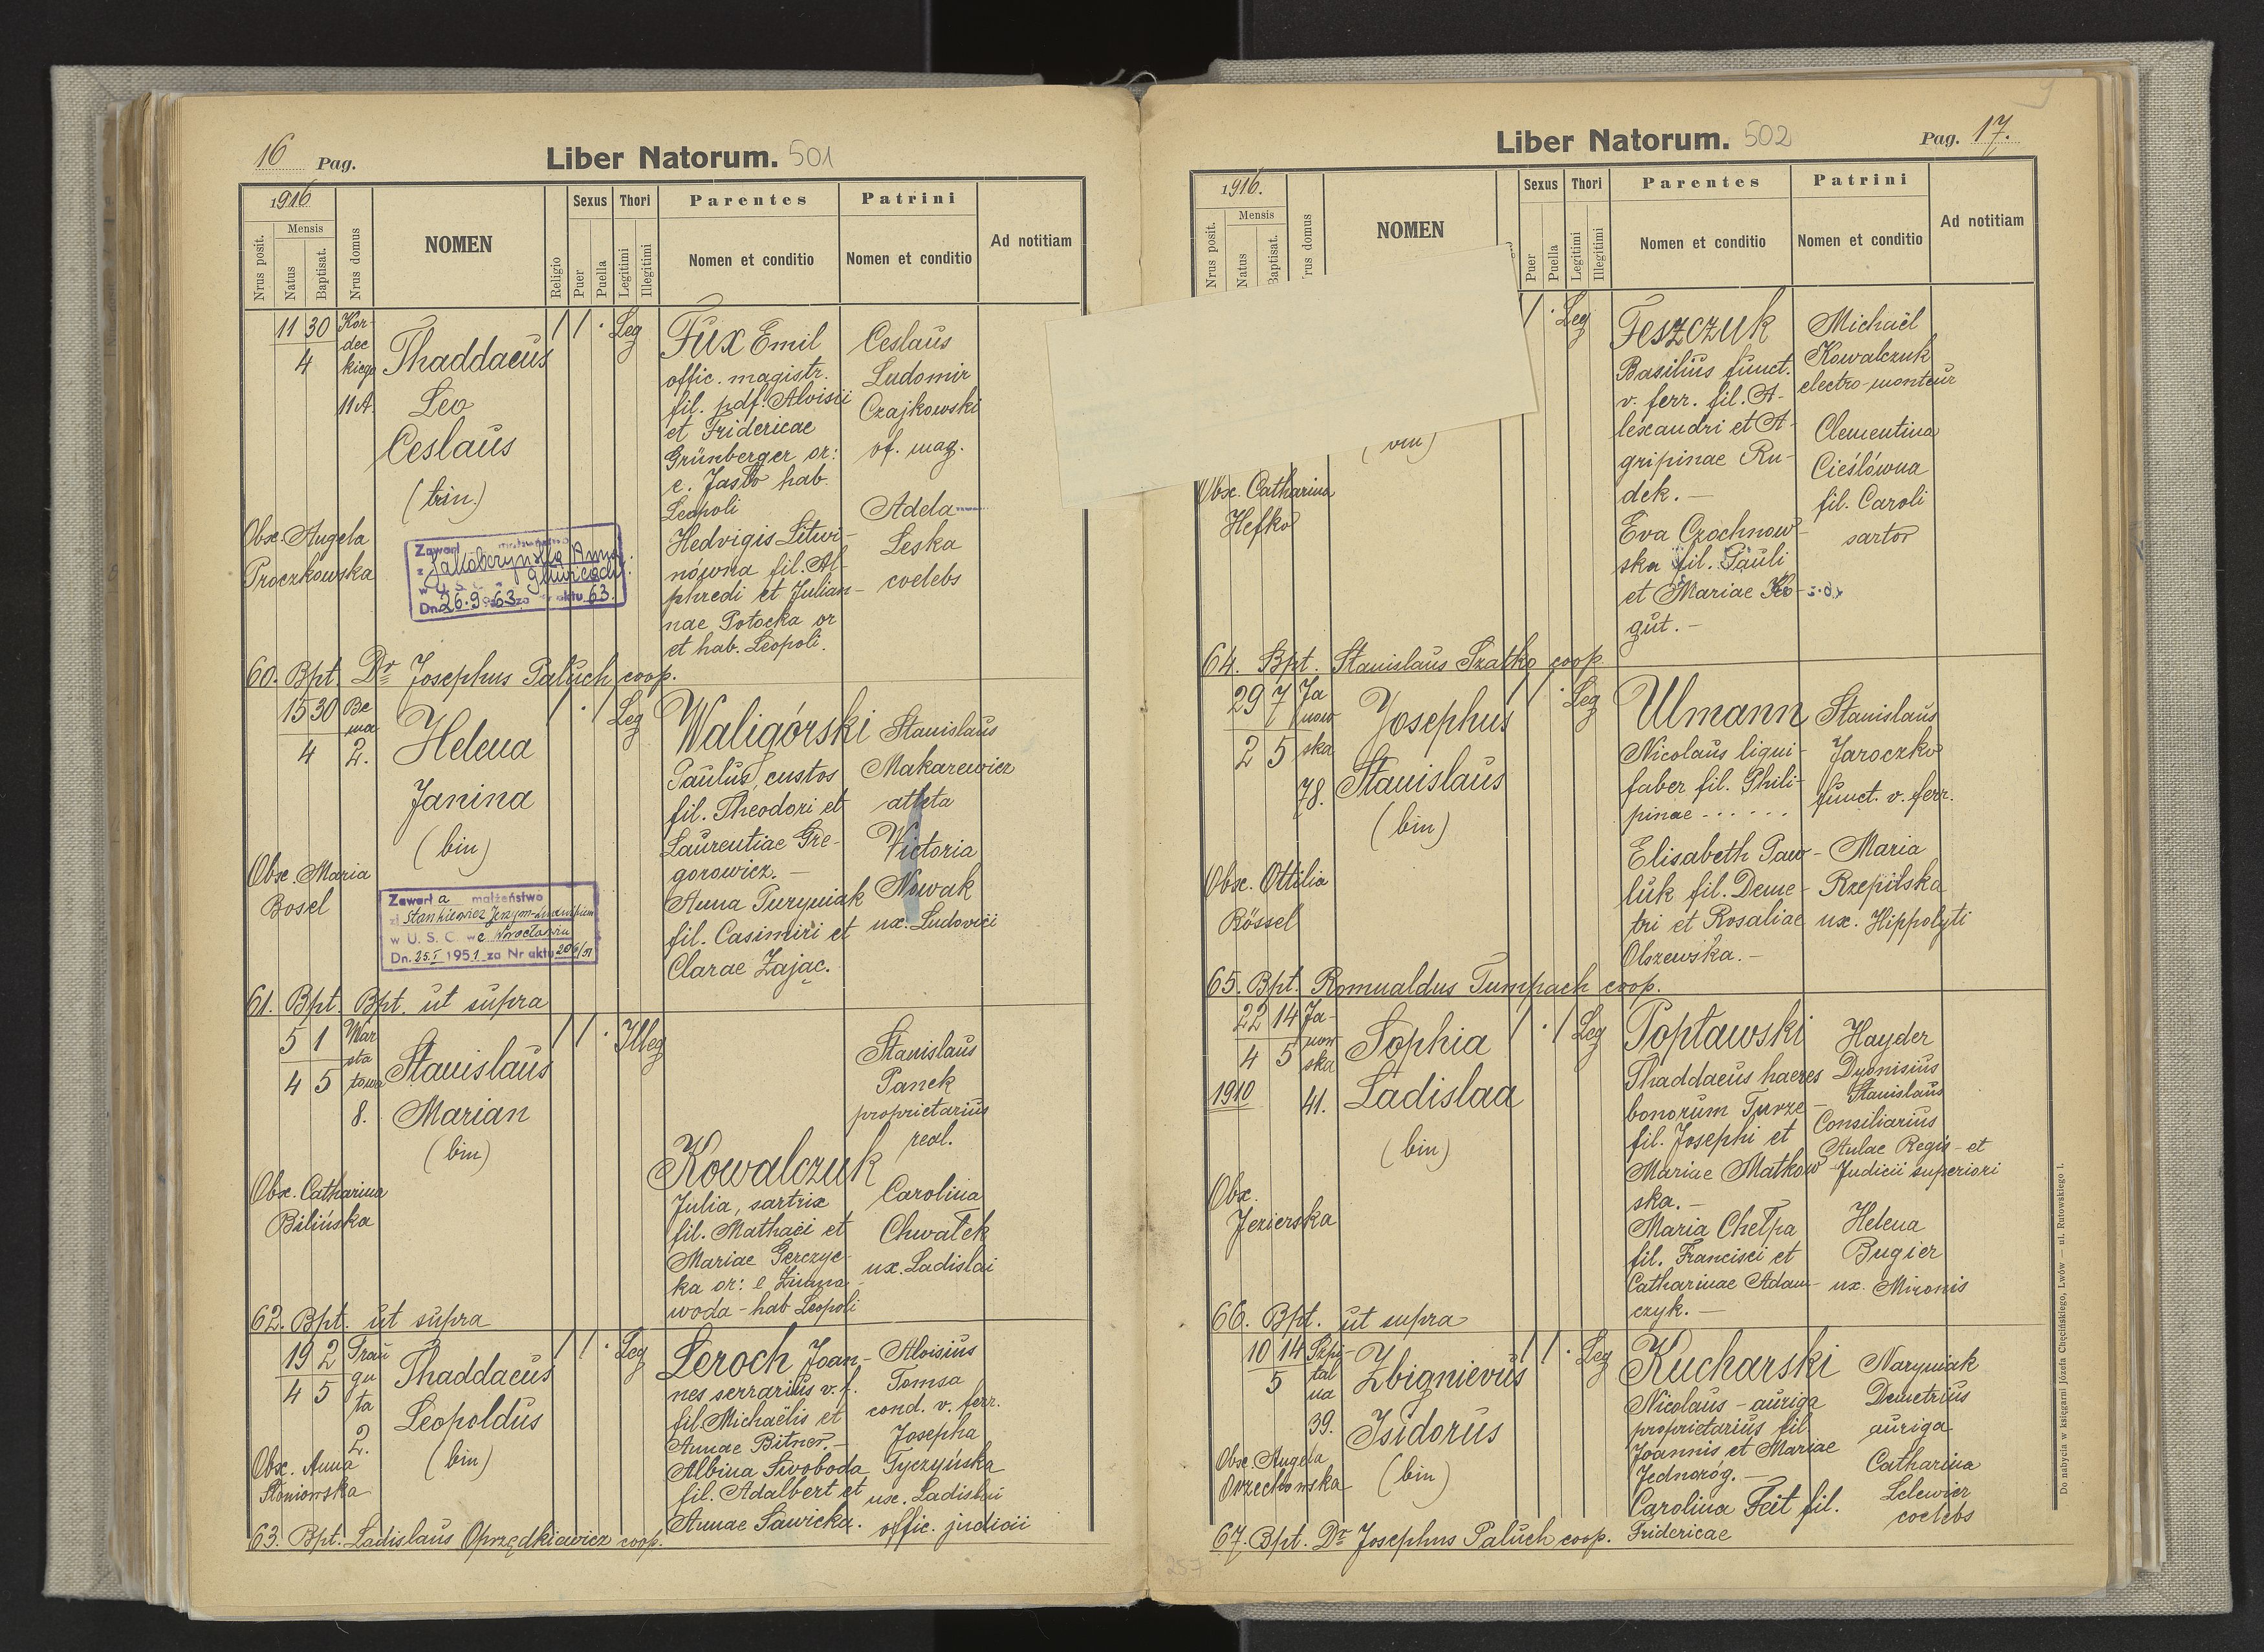 16 Pag.
Liber Natorum. 501
1916
Nrus posit.
Mensis
Natus
Baptisat.
Nrus domus
NOMEN
Religio
Sexus
Puer
Puella
Thori
Legitimi
Illegitimi
Parentes
Nomen et conditio
Patrini
Nomen et conditio
Ad notitiam
11 30
4
Kor-
dec
kiego
11A.
Thaddaeus
Leo
Ceslaus
(trin.)
Obsc. Angela
Proczkowska
1 1 · Leg
Fux Emil
offic. magistr.
fil. pdf. Aloisii
et Fridericae
Grünberger or:
e. Jasło hab.
Leopoli
Hedvigis Litwi-
nówna fil. Al-
phredi et Julian-
nae Potocka or
et hab. Leopoli.
Ceslaus
Ludomir
Czajkowski
of. mag.
Adela
Leska
coelebs
Zawarł małżeństwo
Dn. 26.9.63 za Nr aktu 63.
60. Bpt. Dr Josephus Paluch coop.
15 30
4
Be
ma
2.
Helena
Janina
(bin)
Obsc. Maria
Bosel
1 · 1 Leg
Waligórski
Paulus, custos
fil. Theodori et
Laurentiae Gre-
gorowicz. —
Anna Puryniak
fil. Casimiri et
Clarae Zając.
Stanislaus
Makarewicz
athta
Victoria
Nowak
ux. Ludovici
Zawarła małżeństwo
w U. S. C. we Wrocławiu
Dn. 25.I 1951 za Nr aktu 206/51
61. Bpt. Bpt. ut supra
5 1
4 5
War
sta
towa
8.
Stanislaus
Marian
(bin)
Obsc. Catharina
Bilińska
1 1 · Illeg
Kowalczuk
Julia, sartrix
fil. Mathaei et
Mariae Gerczyc-
ka or: e Zimna-
woda - hab Leopoli
Stanislaus
Panek
proprietarius
real.
Carolina
Chwałek
ux. Ladislai
62. Bpt. ut supra
19 2
4 5
Trau
gu
ta
2.
Thaddaeus
Leopoldus
(bin)
Obsc. Anna
Słoniowska
1 1 · Leg
Leroch Joan-
nes serrarius v. f.
fil. Michaëlis et
Annae Bitner. —
Albina Swoboda
fil. Adalbert et
Annae Sawicka.
Aloisius
Tomsa
cond. v. ferr.
Josepha
Tyczyńska
ux. Ladislai
offic. judicii
63. Bpt. Ladislaus Oprzędkiewicz coop.
Liber Natorum. 502
Pag. 17.
1916.
Nrus posit.
Mensis
Natus
Baptisat.
rus domus
NOMEN
Sexus
Puer
Puella
Thori
Legitimi
Illegitimi
Parentes
Nomen et conditio
Patrini
Nomen et conditio
Ad notitiam
Obsc. Catharina
Hefko
1 · Leg
Feszczuk
Basilius funct.
v. ferr. fil. A-
lexandri et A-
gripinae Ru-
dek. —
Eva Czochnow-
ska fil. Pauli
et Mariae Ko-
gut. —
Michaël
Kowalczuk
electro-monteur
Clementina
Cieślówna
fil. Caroli
sartor
64. Bpt. Stanislaus Szatko coop.
29 7
2 5
Ja
now
ska
78.
Josephus
Stanislaus
(bin)
Obsc. Ottilia
Rössel
1 1 · Leg
Ulmann
Nicolaus ligni-
faber fil. Phili-
pinae . . . . . .
Elisabeth Paw-
luk fil. Deme-
tri et Rosaliae
Olszewska. —
Stanislaus
Jaroczko
funct. v. ferr.
Maria
Rzepilska
ux. Hippolyti
65. Bpt. Romualdus Tumpach coop.
22 14
4 5
1910
Ja-
now
ska
41.
Sophia
Ladislaa
(bin)
Obsc.
Jezierska
1 · 1 Leg
Popławski
Thaddaeus haeres
bonorum Turze-
fil. Josephi et
Mariae Matkow-
ska. —
Maria Chełpa
fil. Francisci et
Catharinae Adam-
czyk. —
Hayder
Dyonisius
Stanislaus
Consiliarius
Aulae Regis - et
Judicii superiori
Helena
Bugier
ux. Mironis
66. Bpt. ut supra
10 14
5
Szpi-
tal
na
39.
Zbignievus
Isidorus
(bin)
Obsc. Angela
Orzechowska
1 1 · Leg
Kucharski
Nicolaus - auriga
proprietarius fil.
Joannis et Mariae
Jednoróg. —
Carolina Feit fil.
Fridericae
Naryniak
Demetrius
auriga
Catharina
Lelewicz
coelebs
67. Bpt. Dr Josephus Paluch coop.
257
Do nabycia w księgarni Józefa Chęcińskiego, Lwów — ul. Rutowskiego 1.